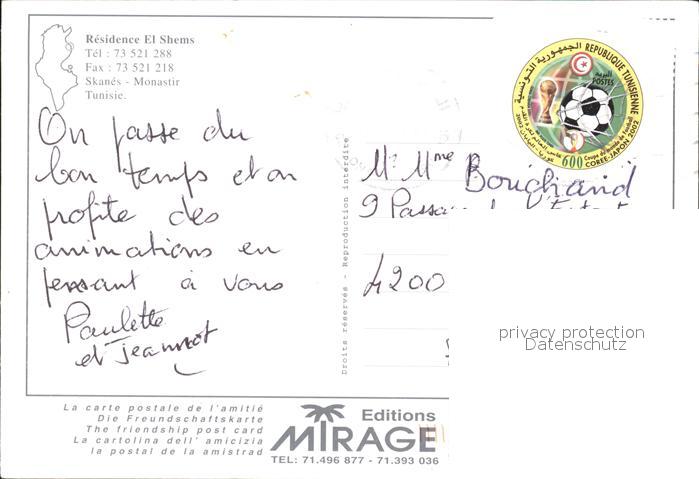 Résidence El Shems
Tél : 73 521 288
Fax : 73 521 218
Skanés - Monastir
Tunisie.
On passe du
bon temps et on
profite des
animations en
pensant à vous
Paulette
et Jeannot
Droits réservés - Reproduction interdite
الجمهورية التونسية
REPUBLIQUE TUNISIENNE
البريد
POSTES
600
Coupe du monde de football
COREE-JAPON 2002
Mr Mme Bouchand
9 Passa
4200
privacy protection
Datenschutz
La carte postale de l'amitié
Die Freundschaftskarte
The friendship post card
La cartolina dell' amicizia
la postal de la amistrad
Editions
MIRAGE
TEL: 71.496 877 - 71.393 036